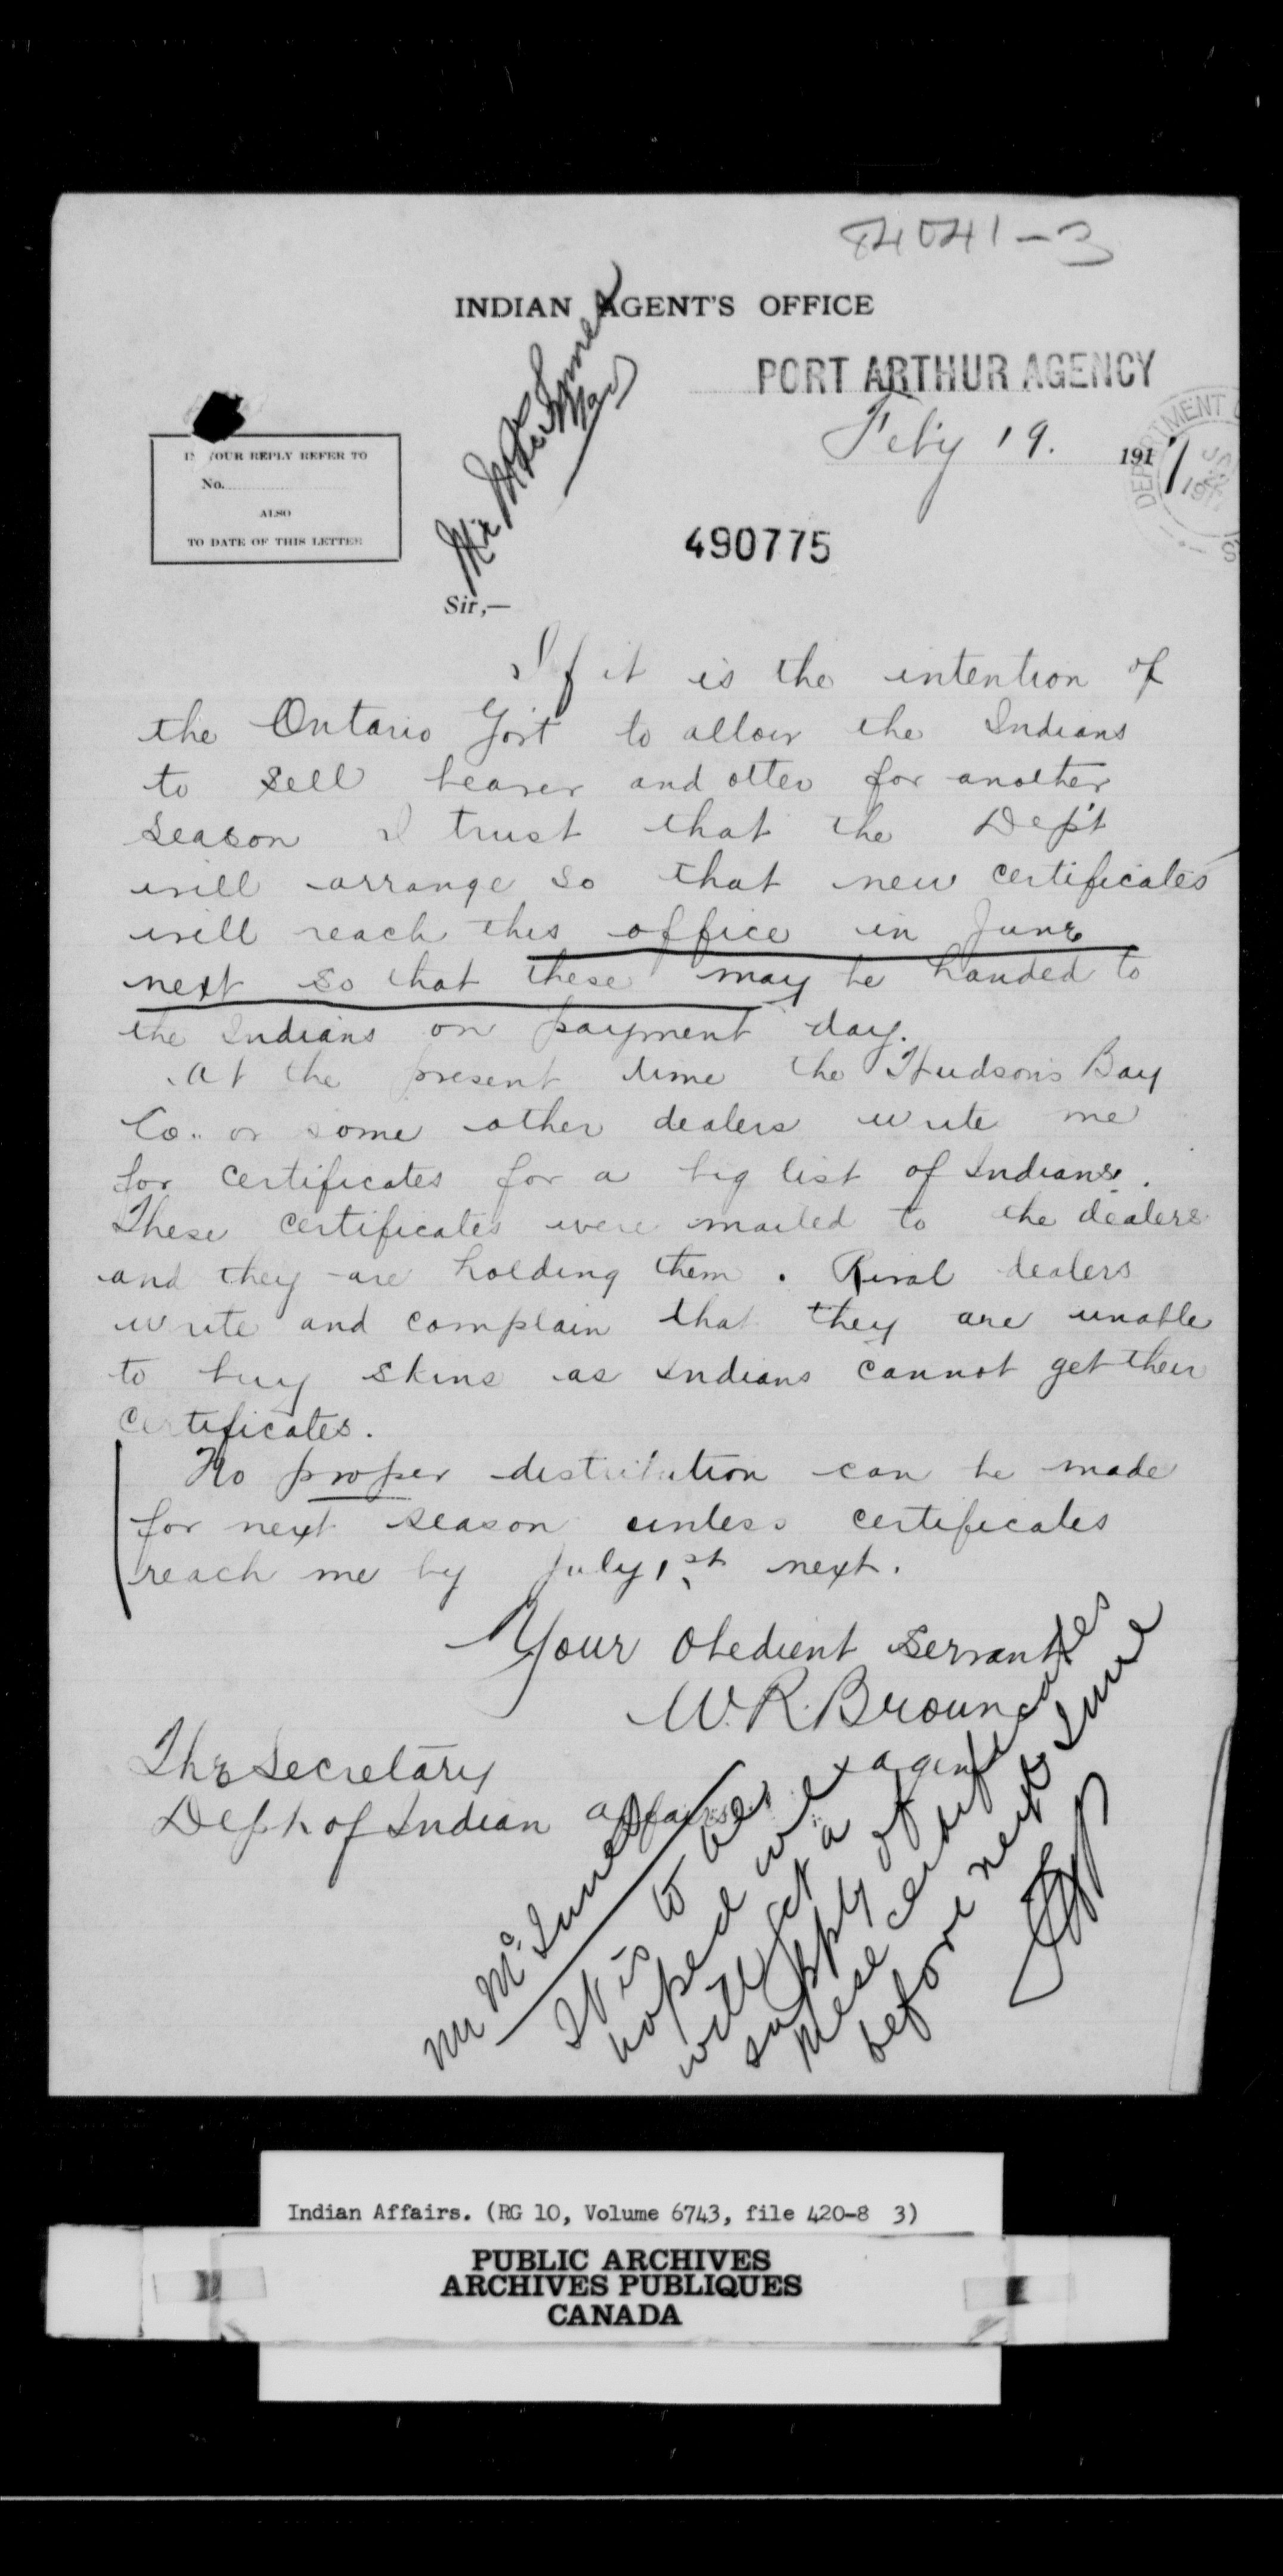 84041-3
INDIAN AGENT'S OFFICE
PORT ARTHUR AGENCY
Feb'y 19. 1917
IN YOUR REPLY REFER TO
No.
ALSO
TO DATE OF THIS LETTER
490775
Sir,—
If it is the intention of
the Ontario Gov't to allow the Indians
to sell beaver and otter for another
season I trust that the Dep't
will arrange so that new certificates
will reach this office in June
next so that these may be handed to
the Indians on payment day.
At the present time the Hudson's Bay
Co. or some other dealers write me
for certificates for a big list of Indians.
These certificates were mailed to the dealers
and they are holding them. Rival dealers
write and complain that they are unable
to buy skins as Indians cannot get their
certificates.
No proper distribution can be made
for next season unless certificates
reach me by July 1st next.
Your Obedient Servant
W. R. Brown
agent
The Secretary
Dept of Indian Affairs
Mr McInnes
It is to be
hoped we
will get a
supply of
these certificates
before next June
Indian Affairs. (RG 10, Volume 6743, file 420-8 3)
PUBLIC ARCHIVES
ARCHIVES PUBLIQUES
CANADA